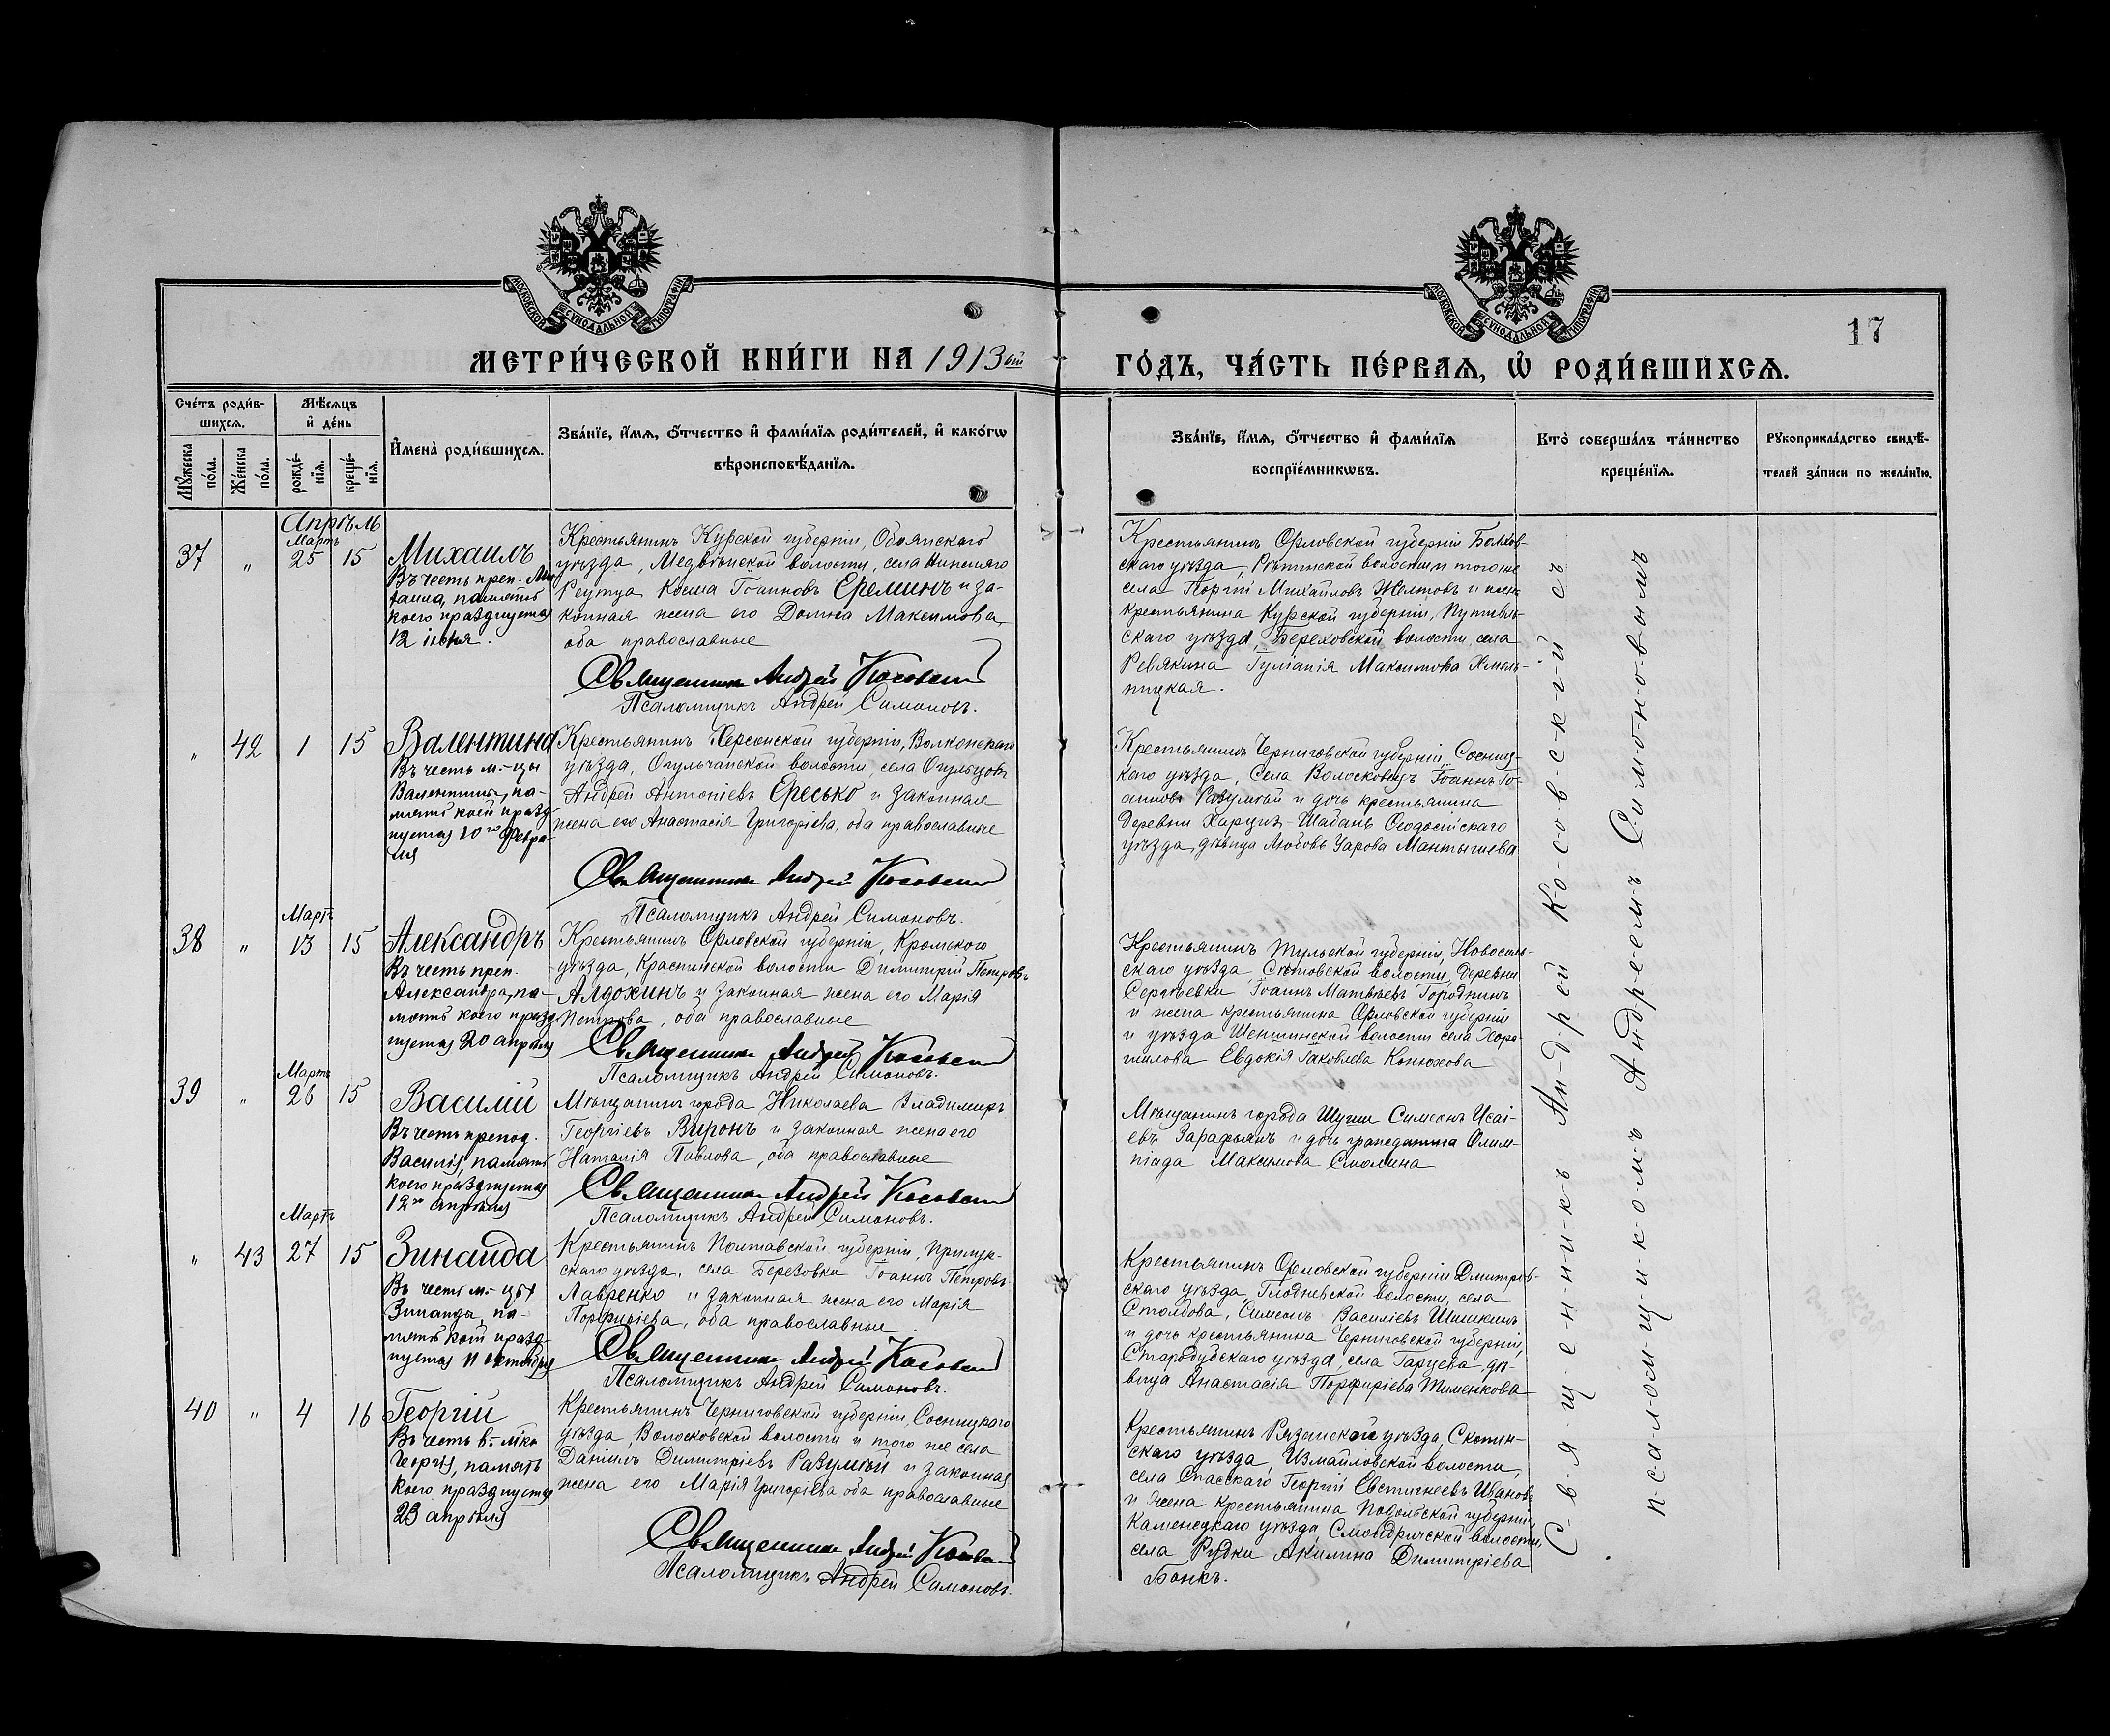 МОСКОВСКОЙ СУНОДАЛЬНОЙ ТИПОГРАФІИ
МОСКОВСКОЙ СУНОДАЛЬНОЙ ТИПОГРАФІИ
17
МЕТРИ́ЧЕСКОЙ КНИ́ГИ НА 1913ый ГО́ДЪ, ЧА́СТЬ ПЕ́РВАѦ, Ѡ҆ РОДИ́ВШИХСѦ.
Сче́тъ роди́в-
шихсѧ.
Мꙋжеска по́ла.
Же́нска по́ла.
Мѣ́сѧцъ
и҆ де́нь
рожде́-
нїѧ.
креще́-
нїѧ.
И҆мена̀ роди́вшихсѧ.
Зва́нїе, и҆́мѧ, ѻ҆́тчество и҆ фами́лїѧ роди́телей, и҆ како́гѡ
вѣроисповѣ́данїѧ.
Зва́нїе, и҆́мѧ, ѻ҆́тчество и҆ фами́лїѧ
воспрїе́мникѡвъ.
Кто̀ соверша́лъ та́инство
креще́нїѧ.
Рꙋкоприкла́дство свидѣ́-
телей за́писи по жела́нїю.
Апрѣль
Мартъ
37 " 25 15
Михаилъ
Въ честь преп. Ми-
хаила, память
коего празднуется
12 іюня.
Крестьянинъ Курской губерніи, Обоянскаго
уѣзда, Медвѣнской волости, села Нижняго
Реутца Косма Іоанновъ Ереминъ и за-
конная жена его Домна Максимова,
оба православные
Священникъ Андрей Косовскій
Псаломщикъ Андрей Симоновъ.
Крестьянинъ Орловской губерніи Болхов-
скаго уѣзда, волости и того же
села Георгій Михайловъ Желтовъ и жена
крестьянина Курской губерніи, Путивль-
скаго уѣзда, Береховской волости, села
Ревякина Іуліанія Максимова Хмель-
ницкая.
" 42 1 15
Валентина
Въ честь м-цы
Валентины, па-
мять коей празд-
нуется 10го Февра-
ля
Крестьянинъ Херсонской губерніи, Волконскаго
уѣзда, Огульчанской волости, села Огульцовъ
Андрей Антоніевъ Ересько и законная
жена его Анастасія Григоріева, оба православные
Священникъ Андрей Косовскій
Псаломщикъ Андрей Симоновъ.
Крестьянинъ Черниговской губерніи, Сосниц-
каго уѣзда, села Волосковецъ Іоаннъ Іо-
анновъ Разумѣй и дочь крестьянина
деревни Харциз-Шабань Ѳеодосійскаго
уѣзда, дѣвица Любовь Уарова Мантычева
Мартъ
38 " 13 15
Александръ
Въ честь преп.
Александра, па-
мять коего празд-
нуется 20 апрѣля
Крестьянинъ Орловской губерніи, Кромскаго
уѣзда, Краснинской волости Димитрій Петровъ
Алдохинъ и законная жена его Марія
Петрова, оба православные
Священникъ Андрей Косовскій
Псаломщикъ Андрей Симоновъ.
Крестьянинъ Тульской губерніи, Новосиль-
скаго уѣзда, Сѣтовской волости, деревни
Сергѣевки Іоаннъ Матвѣевъ Городнинъ
и жена крестьянина Орловской губерніи
и уѣзда Шеншинской волости села Хоро-
шилова Евдокія Іаковлева Конюхова
Мартъ
39 " 26 15
Василій
Въ честь препод.
Василія, память
коего празднуется
12го апрѣля
Мѣщанинъ города Николаева Владимиръ
Георгіевъ Виронъ и законная жена его
Наталія Павлова, оба православные
Священникъ Андрей Косовскій
Псаломщикъ Андрей Симоновъ.
Мѣщанинъ города Шуши Симеонъ Исаі-
евъ Зарафьянъ и дочь гражданина Олим-
піада Максимова Смолина
Мартъ
" 43 27 15
Зинаида
Въ честь м-цы
Зинаиды, па-
мять коей празд-
нуется 11 октября
Крестьянинъ Полтавской губерніи, Прилук-
скаго уѣзда, села Березовки Іоаннъ Петровъ
Лавренко и законная жена его Марія
Порфиріева, оба православные.
Священникъ Андрей Косовскій
Псаломщикъ Андрей Симоновъ.
Крестьянинъ Орловской губерніи Дмитров-
скаго уѣзда, Глодневской волости, села
Столбова, Симеонъ Василіевъ Шишкинъ
и дочь крестьянина Черниговской губерніи,
Стародубскаго уѣзда, села Гарцева, дѣ-
вица Анастасія Порфиріева Тименкова
40 " 4 16
Георгій
Въ честь в-мка
Георгія, память
коего празднуется
23 апрѣля
Крестьянинъ Черниговской губерніи, Сосницкаго
уѣзда, Волосковской волости и того же села
Даніилъ Димитріевъ Разумѣй и законная
жена его Марія Григоріева оба православные
Священникъ Андрей Косовскій
Псаломщикъ Андрей Симоновъ.
Крестьянинъ Рязанской уѣзда, Скопин-
скаго уѣзда, Измайловской волости,
села Спасскаго Георгій Евстигнеевъ Ивановъ
и жена крестьянина Подольской губерніи,
Каменецкаго уѣзда, Смотричской волости,
села Рудки Акилина Димитріева
Бонкъ.
С-в-я-щ-е-н-н-и-к-ъ Ан-д-р-ей Ко-с-о-в-с-к-і-й съ
п-с-а-л-о-м-щ-и-к-о-м-ъ А-н-д-р-е-е-м-ъ С-и-м-о-н-о-в-ы-м-ъ